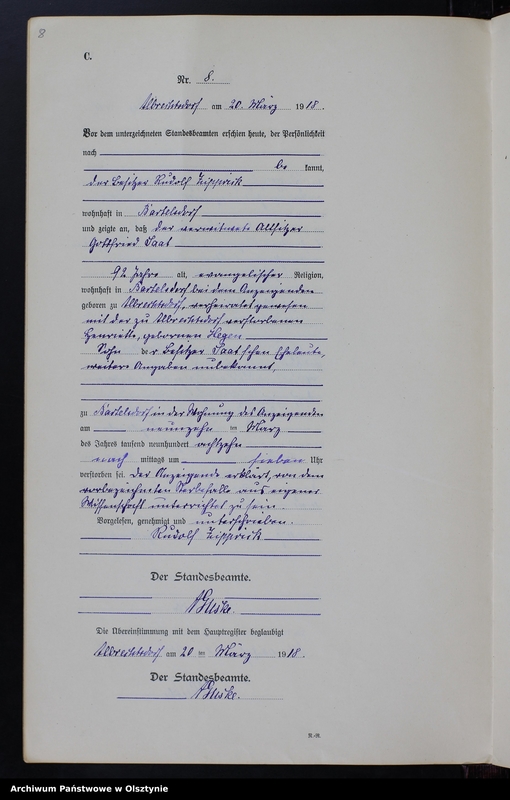 8
C.
Nr. 8.
Albrechtsdorf am 20. März 1918.
Vor dem unterzeichneten Standesbeamten erschien heute, der Persönlichkeit
nach
be kannt,
der Besitzer Rudolf Zipprick
wohnhaft in Bartelsdorf
und zeigte an, daß der verwitwete Altsitzer
Gottfried Saat
92 Jahre alt, evangelischer Religion,
wohnhaft in Bartelsdorf bei dem Anzeigenden
geboren zu Albrechtsdorf, verheiratet gewesen
mit der zu Albrechtsdorf verstorbenen
Henriette, geborenen
Sohn der Besitzer Saat'schen Eheleute,
weitere Angaben unbekannt,
zu Bartelsdorf in der Wohnung des Anzeigenden
am neunzehn ten März
des Jahres tausend neunhundert achtzehn
nach mittags um sieben Uhr
verstorben sei. Der Anzeigende erklärt, von dem
vorbezeichneten Sterbefalle aus eigener
Wissenschaft unterrichtet zu sein.
Vorgelesen, genehmigt und unterschrieben.
Rudolf Zipprick
Der Standesbeamte.
Die Übereinstimmung mit dem Hauptregister beglaubigt
Albrechtsdorf am 20 ten März 1918.
Der Standesbeamte.
Archiwum Państwowe w Olsztynie